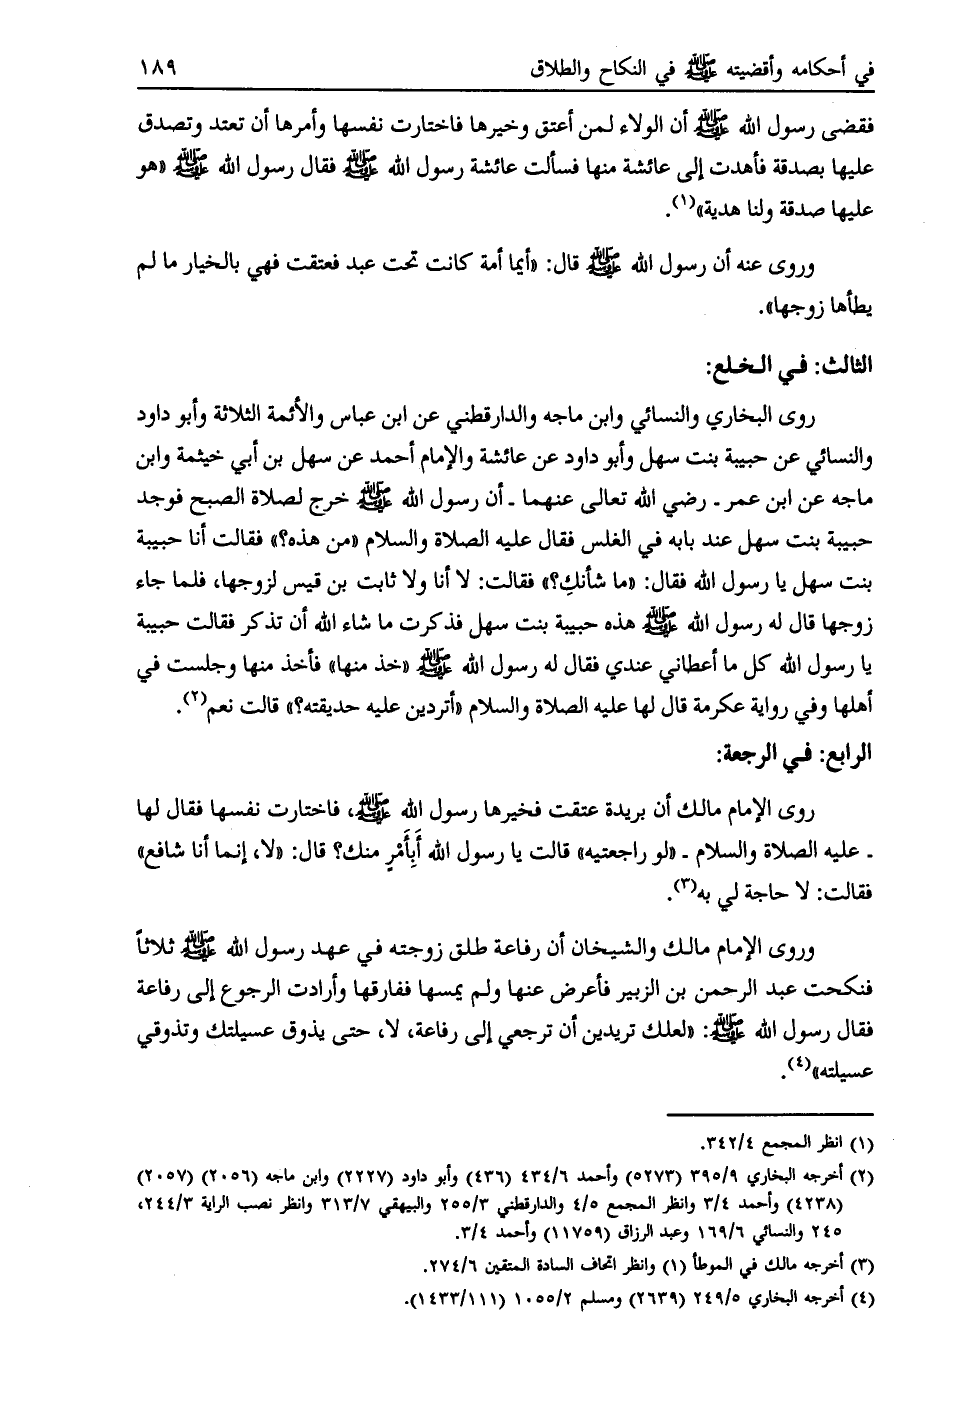 في أحكامه وأقضيته ﷺ في النكاح والطلاق ١٨٩
فقضى رسول الله ﷺ أن الولاء لمن أعتق وخيرها فاختارت نفسها وأمرها أن تعتد وتصدق
عليها بصدقة فأهدت إلى عائشة منها فسألت عائشة رسول الله ﷺ فقال رسول الله ﷺ «هو
عليها صدقة ولنا هدية»(١).
وروى عنه أن رسول الله ﷺ قال: «أيما أمة كانت تحت عبد فعتقت فهي بالخيار ما لم
يطأها زوجها».
الثالث: في الخلع:
روى البخاري والنسائي وابن ماجه والدارقطني عن ابن عباس والأئمة الثلاثة وأبو داود
والنسائي عن حبيبة بنت سهل وأبو داود عن عائشة والإمام أحمد عن سهل بن أبي خيثمة وابن
ماجه عن ابن عمر ـ رضي الله تعالى عنهما ـ أن رسول الله ﷺ خرج لصلاة الصبح فوجد
حبيبة بنت سهل عند بابه في الغلس فقال عليه الصلاة والسلام «من هذه؟» فقالت أنا حبيبة
بنت سهل يا رسول الله فقال: «ما شأنكِ؟» فقالت: لا أنا ولا ثابت بن قيس لزوجها، فلما جاء
زوجها قال له رسول الله ﷺ هذه حبيبة بنت سهل فذكرت ما شاء الله أن تذكر فقالت حبيبة
يا رسول الله كل ما أعطاني عندي فقال له رسول الله ﷺ «خذ منها» فأخذ منها وجلست في
أهلها وفي رواية عكرمة قال لها عليه الصلاة والسلام «أتردين عليه حديقته؟» قالت نعم(٢).
الرابع: في الرجعة:
روى الإمام مالك أن بريدة عتقت فخيرها رسول الله ﷺ، فاختارت نفسها فقال لها
ـ عليه الصلاة والسلام ـ «لو راجعتيه» قالت يا رسول الله أَبِأَمْرٍ منك؟ قال: «لا، إنما أنا شافع»
فقالت: لا حاجة لي به(٣).
وروى الإمام مالك والشيخان أن رفاعة طلق زوجته في عهد رسول الله ﷺ ثلاثاً
فنكحت عبد الرحمن بن الزبير فأعرض عنها ولم يمسها ففارقها وأرادت الرجوع إلى رفاعة
فقال رسول الله ﷺ: «لعلك تريدين أن ترجعي إلى رفاعة، لا، حتى يذوق عسيلتك وتذوقي
عسيلته»(٤).
(١) انظر المجمع ٣٤٢/٤.
(٢) أخرجه البخاري ٣٩٥/٩ (٥٢٧٣) وأحمد ٤٣٤/٦ (٤٣٦) وأبو داود (٢٢٢٧) وابن ماجه (٢٠٥٦) (٢٠٥٧)
(٤٢٣٨) وأحمد ٣/٤ وانظر المجمع ٤/٥ والدارقطني ٢٥٥/٣ والبيهقي ٣١٣/٧ وانظر نصب الراية ٢٤٤/٣،
٢٤٥ والنسائي ١٦٩/٦ وعبد الرزاق (١١٧٥٩) وأحمد ٣/٤.
(٣) أخرجه مالك في الموطأ (١) وانظر اتحاف السادة المتقين ٢٧٤/٦.
(٤) أخرجه البخاري ٢٤٩/٥ (٢٦٣٩) ومسلم ١٠٥٥/٢ (١٤٣٣/١١١).